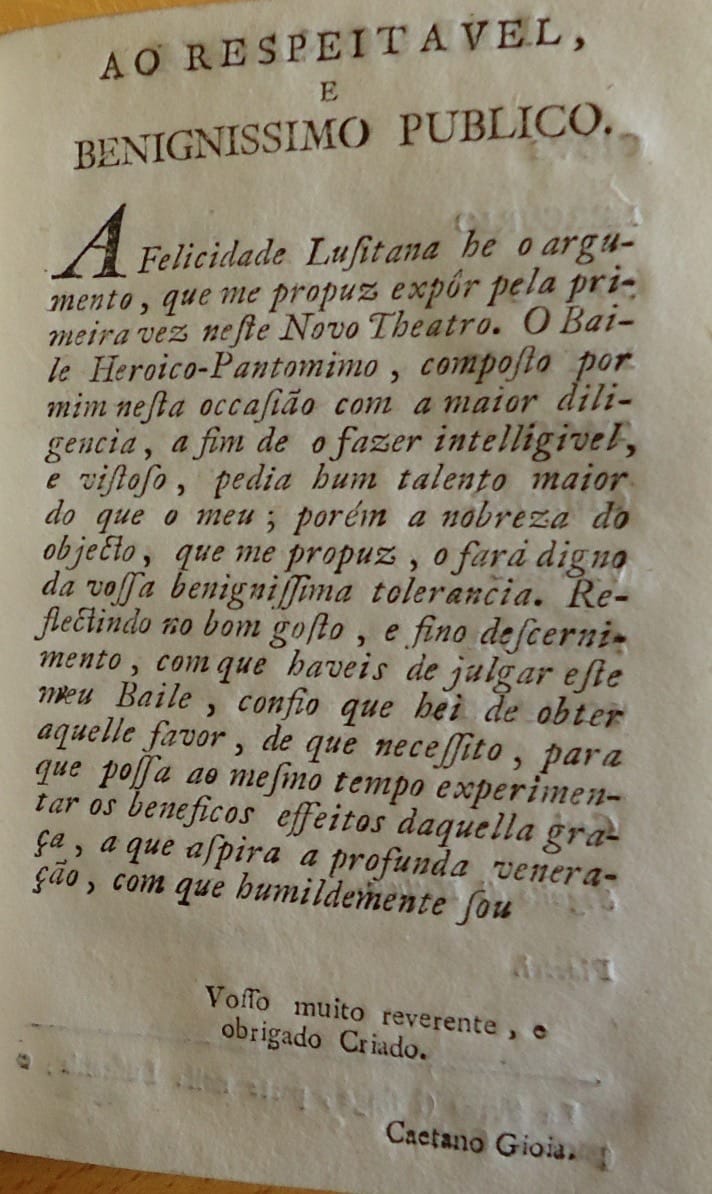 AO RESPEITAVEL,
E
BENIGNISSIMO PUBLICO.
A Felicidade Luſitana he o argu-
mento, que me propuz expôr pela pri-
meira vez neſte Novo Theatro. O Bai-
le Heroico-Pantomimo, compoſto por
mim neſta occaſião com a maior dili-
gencia, a fim de o fazer intelligivel,
e viſtoſo, pedia hum talento maior
do que o meu; porém a nobreza do
objecto, que me propuz, o fará digno
da voſſa benigniſſima tolerancia. Re-
flectindo no bom goſto, e fino deſcerni-
mento, com que haveis de julgar eſte
meu Baile, confio que hei de obter
aquelle favor, de que neceſſito, para
que poſſa ao meſmo tempo experimen-
tar os beneficos effeitos daquella gra-
ça, a que aſpira a profunda venera-
ção, com que humildemente ſou
Voſſo muito reverente, e
obrigado Criado.
Caetano Gioia.